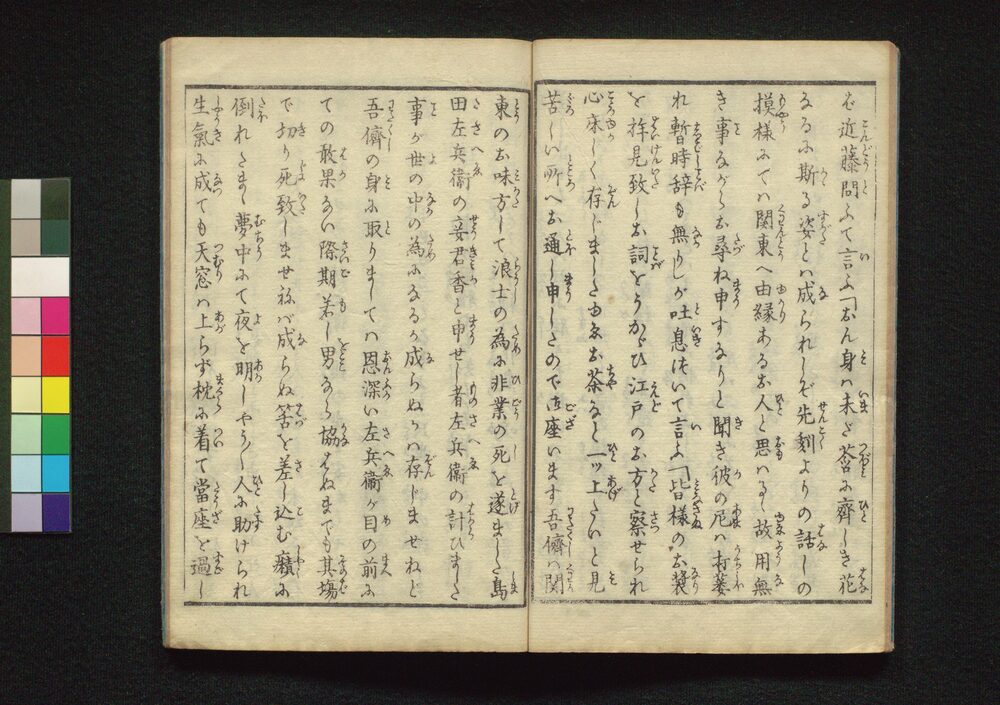 ば近藤問ふて言ふ「おん身ハ未だ莟に齊しき花
なるに斯る姿とハ成られしぞ先刻よりの話しの
摸様にてハ関東へ由縁あるお人と思ハるゝ故用無
き事ながらお尋ね申すなりと聞き彼の尼ハ打萎
れ暫時辞も無りしが吐息ついて言ふ「皆様のお装
を拝見致しお詞をうかゞひ江戸のお方と察せられ
心床しく存じましたゆゑお茶なと一ッ上たいと見
苦しい所へお通し申したので御座います吾儕ハ関
東のお味方して浪士の為に非業の死を遂ました島
田左兵衞の妾君香と申せし者左兵衞の計ひました
事が世の中の為になるか成らぬかハ存じませねど
吾儕の身に取りましてハ恩深い左兵衞が目の前に
ての敢果ない際期若し男なら協ハぬまでも其塲
で切り死致しませねバ成らぬ筈を差し込む癪に
倒れたまゝ夢中にて夜を明しやう〳〵人に助けられ
生氣に成ても天窓ハ上らず枕に着て當座を過し